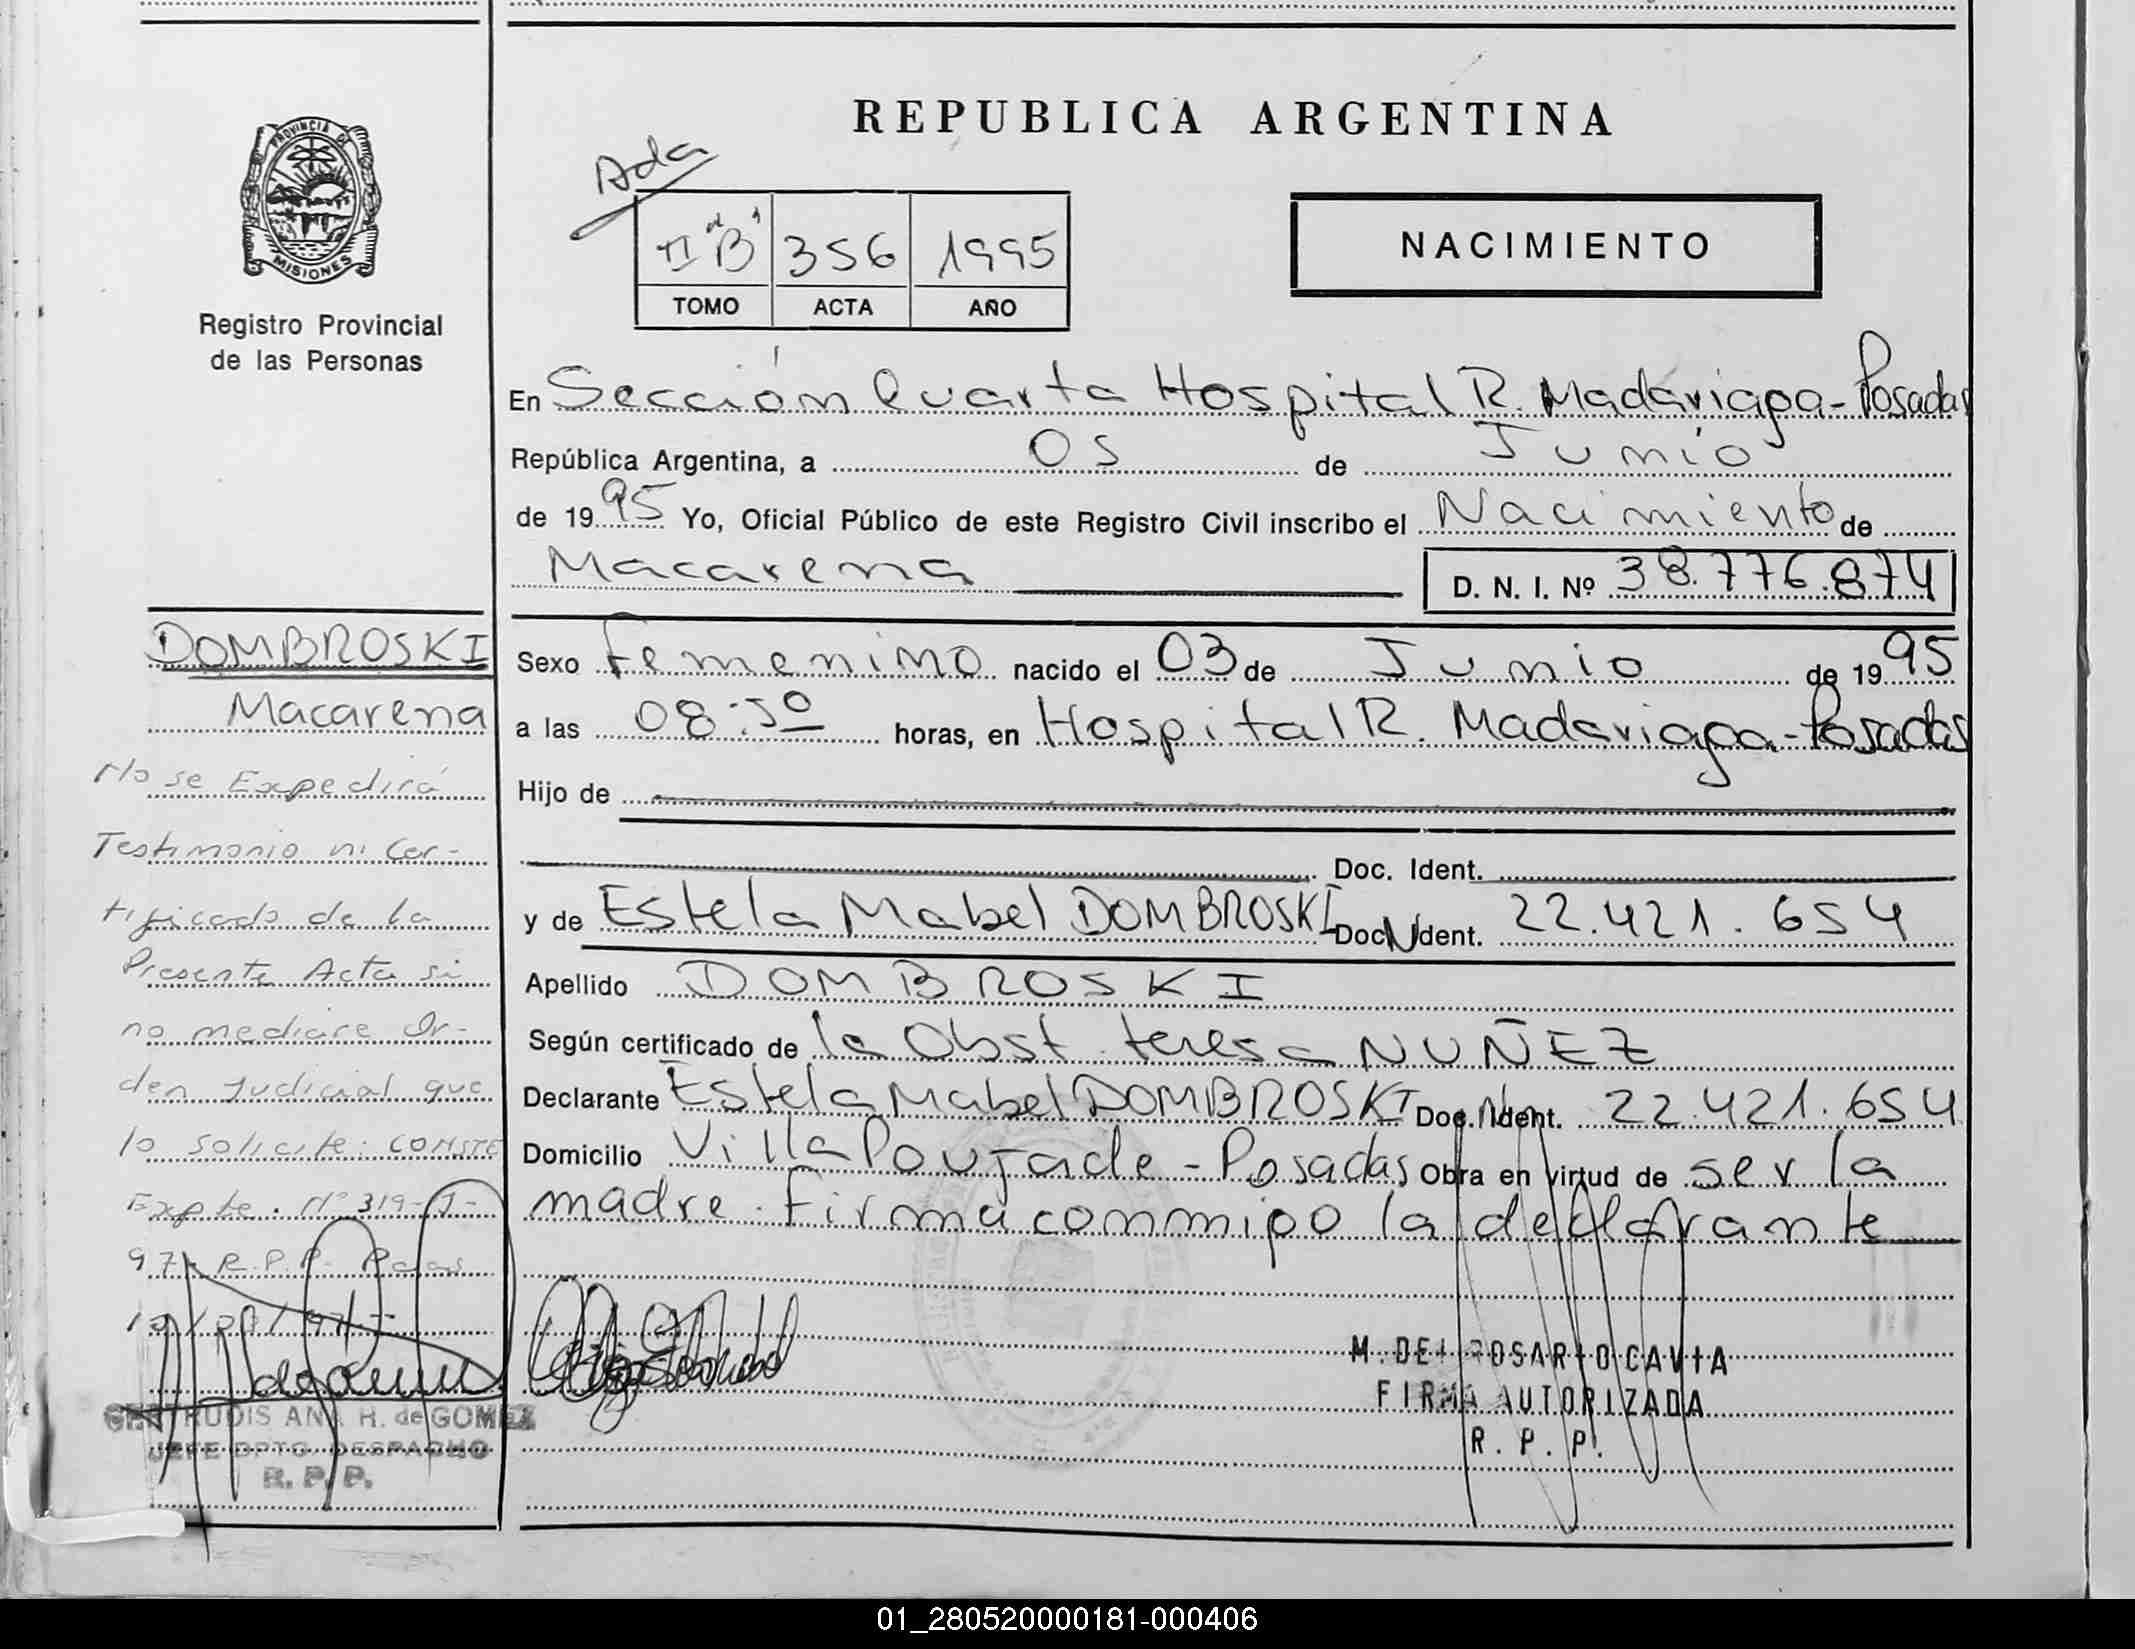 REPUBLICA ARGENTINA
Ada
PROVINCIA DE
MISIONES
Registro Provincial
de las Personas
II "B" 356 1995
TOMO ACTA AÑO
NACIMIENTO
En Sección Cuarta Hospital R. Madariaga - Posadas
República Argentina, a 05 de Junio
de 1995 Yo, Oficial Público de este Registro Civil inscribo el Nacimiento de
Macarena
D. N. I. Nº 38.776.874
Sexo Femenino nacido el 03 de Junio de 1995
a las 08:50 horas, en Hospital R. Madariaga - Posadas
Hijo de
Doc. Ident.
y de Estela Mabel DOMBROSKI Doc. Ident. 22.421.654
Apellido DOMBROSKI
Según certificado de la Obst. Teresa NUÑEZ
Declarante Estela Mabel DOMBROSKI Doc. Ident. 22.421.654
Domicilio Villa Poujade - Posadas Obra en virtud de ser la
madre. Firma conmigo la declarante
M. DEL ROSARIO CAVIA
FIRMA AUTORIZADA
R. P. P.
DOMBROSKI
Macarena
No se Expedirá
Testimonio ni Cer-
tificado de la
Presente Acta si
no mediare Or-
den Judicial que
lo solicite: CONSTE
Expte. Nº 319-J-
97- R.P.P. Pdas
GERTRUDIS ANA H. de GOMEZ
JEFE DPTO. DESPACHO
R. P. P.
01_280520000181-000406